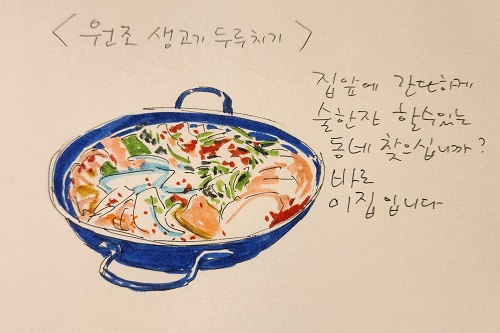 <원조 생고기 두루치기>
집앞에 간단하게
술한잔 할수있는
동네 찾으십니까?
바로
이집입니다